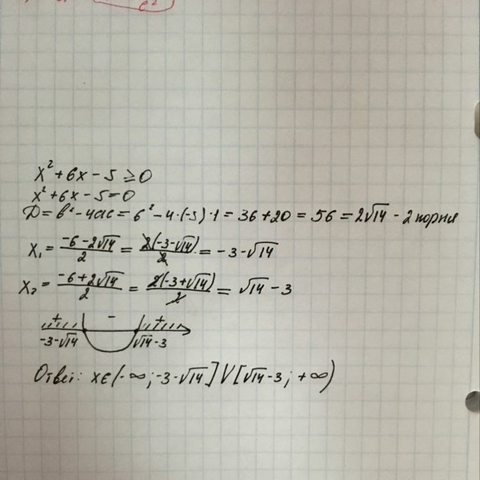 x² + 6x - 5 ≥ 0
x² + 6x - 5 = 0
D = b² - 4ac = 6² - 4·(-5)·1 = 36 + 20 = 56 = 2√14 - 2 корня
x₁ = (-6 - 2√14)/2 = 2(-3 - √14)/2 = -3 - √14
x₂ = (-6 + 2√14)/2 = 2(-3 + √14)/2 = √14 - 3
+ - +
-3-√14 √14-3
Ответ: x∈(-∞; -3-√14] V [√14-3; +∞)